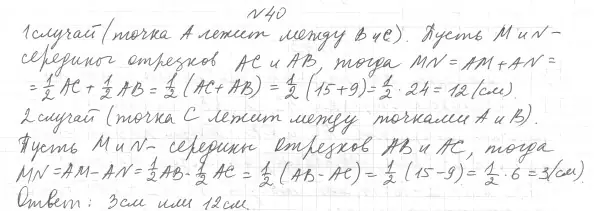 №40
1 случай (точка A лежит между B и C). Пусть M и N-
середины отрезков AC и AB, тогда MN = AM + AN =
= 1/2 AC + 1/2 AB = 1/2 (AC + AB) = 1/2 (15 + 9) = 1/2 · 24 = 12 (см).
2 случай (точка C лежит между точками A и B).
Пусть M и N- середины отрезков AB и AC, тогда
MN = AM - AN = 1/2 AB - 1/2 AC = 1/2 (AB - AC) = 1/2 (15 - 9) = 1/2 · 6 = 3 (см).
Ответ: 3см или 12см